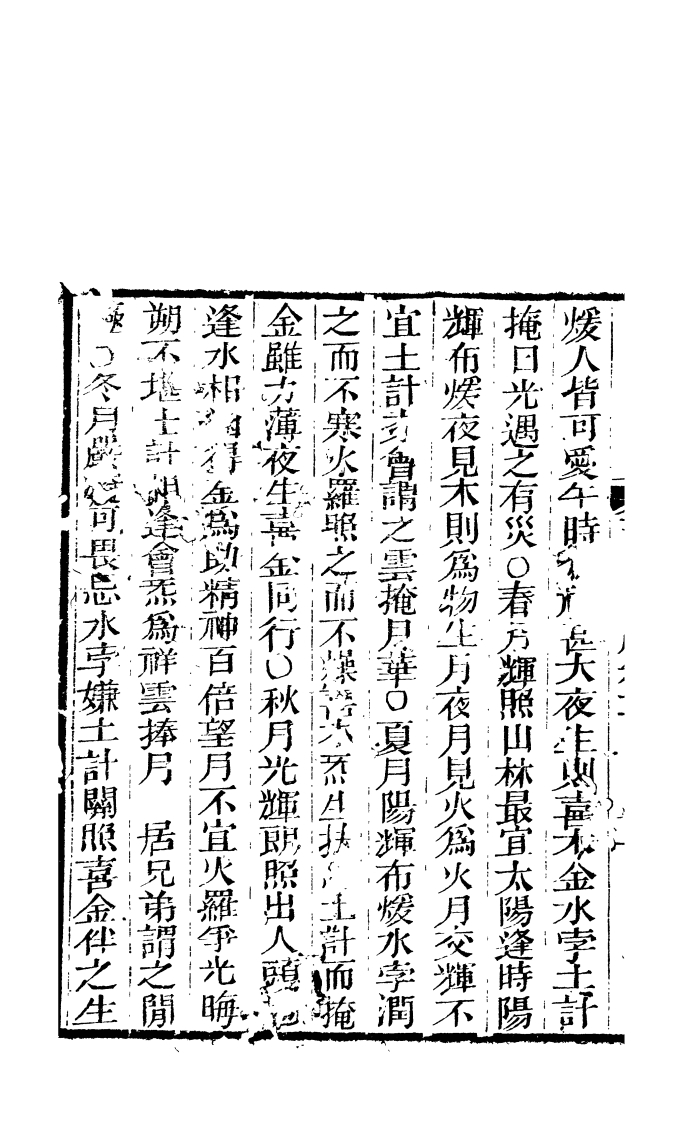 煖人皆可愛午時甚大夜生則喜木金水孛土計
掩日光遇之有災○春月輝照山林最宜太陽逢時陽
輝布煖夜見木則為物生月夜月見火為火月交輝不
宜土計交會謂之雲掩月華○夏月陽輝布煖水孛潤
之而不寒火羅照之而不燥木炁生扶土計而掩
金雖力薄夜生喜金同行○秋月光輝朗照出人頭地
逢水相得金為助精神百倍望月不宜火羅爭光晦
朔不堪土計相逢會炁為祥雲捧月 居兄弟謂之閒
極○冬月嚴凝可畏忌水孛嫌土計關照喜金伴之生